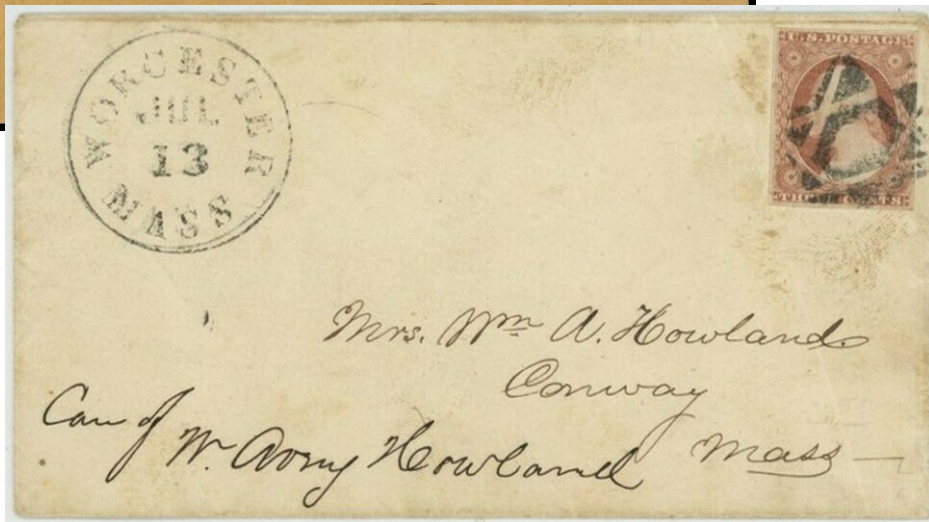 WORCESTER
JUL
13
MASS
U.S. POSTAGE
THREE CENTS
Mrs. Wm A. Howland
Conway
Mass
Care of
W. Avery Howland